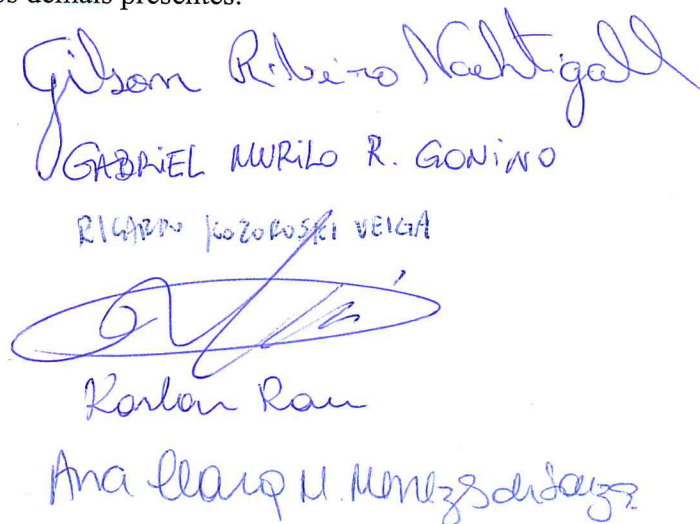 os demais presentes.
Gilson Ribeiro Nachtigall
GABRIEL MURILO R. GONINO
RICARDO KOZOROSKI VEIGA
Karlan Rau
Ana Clara M. Menezes de Souza